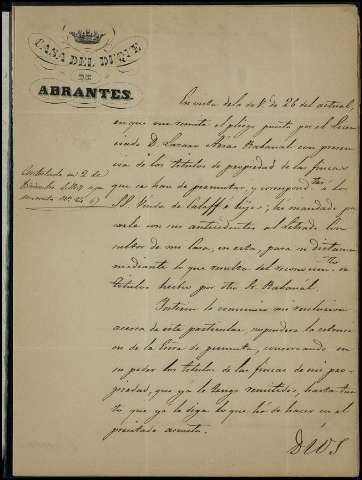 CASA DEL DUQUE
DE
ABRANTES.
En vista de la de V. de 26 del actual,
en que me remite el pliego puesto por el Licen
ciado D. Lázaro
cia de los títulos de propiedad de las fincas
que se han de permutar, y
Sª Viuda de é hijos; he mandado pa
sarlo con sus antecedentes al Letrado Con
sultor de mi Casa, en esta, para su dictamen
mediante lo que resulta del
títulos hecho por dho Sr. Rabanal.
Contestado en 2 de
Diciembre
Interin le comunico mi resolucion
acerca de este particular suspenda la estensi
on de la Escra de permuta, conservando en
su poder los títulos de las fincas de mi pro
piedad, que ya le tengo remitidos, hasta tan
to que yo le diga lo que há de hacer en el
precitado asunto.